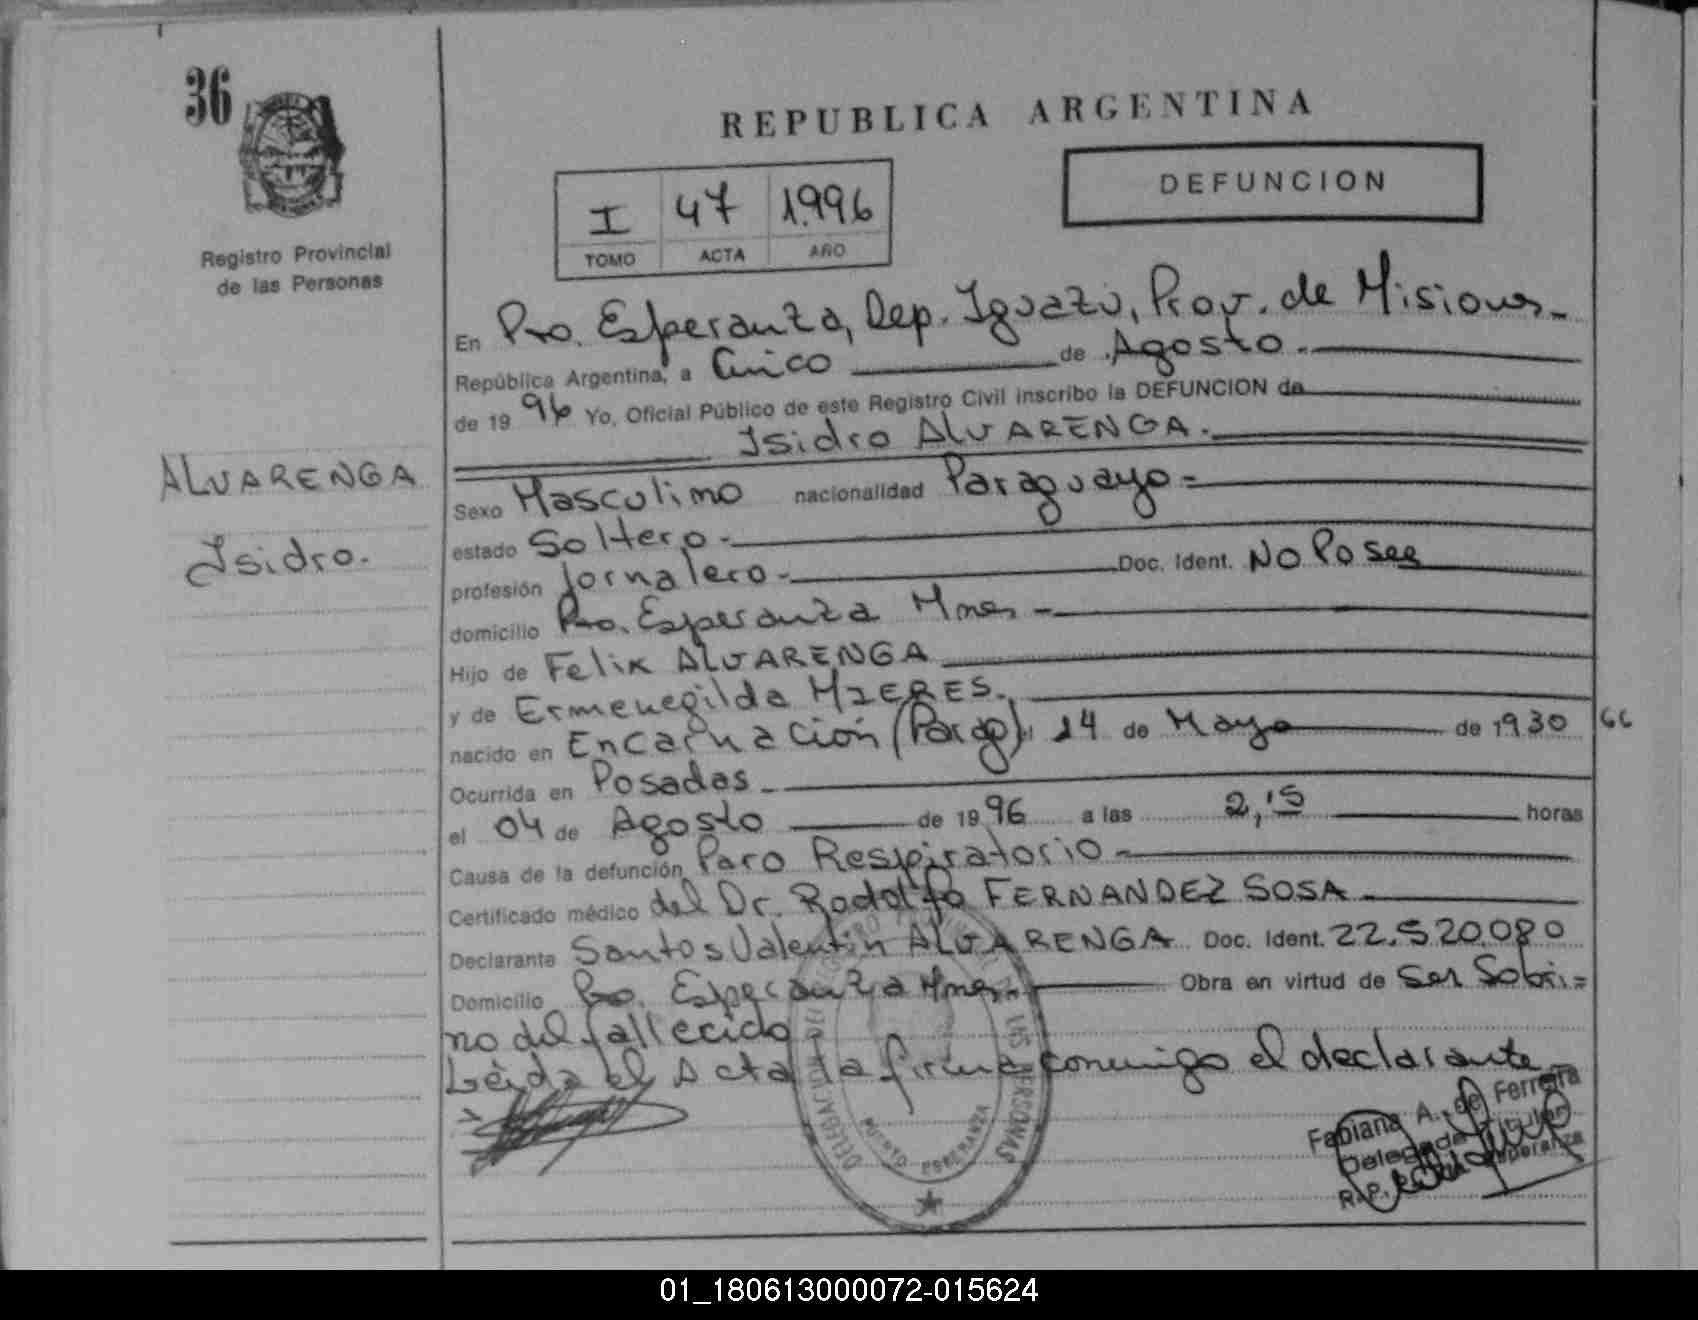 36
REPUBLICA ARGENTINA
Registro Provincial
de las Personas
I 47 1.996
TOMO ACTA AÑO
DEFUNCION
En Pto. Esperanza, Dep. Iguazú, Prov. de Misiones.-
República Argentina, a Cinco de Agosto.-
de 19 96 Yo, Oficial Público de este Registro Civil inscribo la DEFUNCION de
Isidro ALVARENGA.
ALVARENGA
Isidro.
Sexo Masculino nacionalidad Paraguayo=
estado Soltero.-
profesión Jornalero.- Doc. Ident. No Posee
domicilio Pto. Esperanza Mnes.-
Hijo de Felix ALVARENGA
y de Ermenegilda MIERES.
nacido en Encarnación (Parag). 14 de Mayo de 1930 66
Ocurrida en Posadas.
el 04 de Agosto de 19 96 a las 2,15 horas
Causa de la defunción Paro Respiratorio.-
Certificado médico del Dr. Rodolfo FERNANDEZ SOSA.
Declarante Santos Valentín ALVARENGA Doc. Ident. 22.520.080
Domicilio Pto. Esperanza Mnes.- Obra en virtud de Ser Sobri=
no del fallecido
Leída el Acta la firma conmigo el declarante
DELEGACION REGISTRO DE LAS PERSONAS
PUERTO ESPERANZA
Fabiana A. de Ferreira
Delegada Titular
R.P. Esperanza
01_180613000072-015624